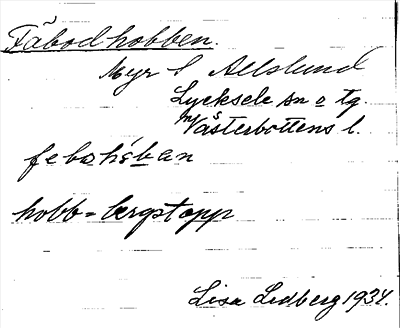 Fäbodhobben.
Myr S Allslund
Lycksele sn o tg.
Västerbottens l.
hobb = bergstopp
Lisa Lidberg 1934.